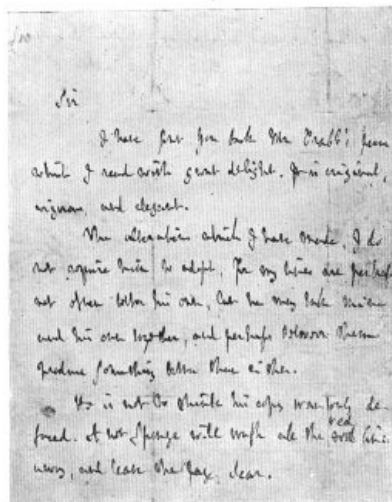 Sir
I have sent you back Mr Crabb's poem
which I read with great delight. It is original,
vigorous, and elegant.
The alterations which I have made, I do
not require him to adopt, for my lines are perhaps
not often better his own, but he may take mine
and his own together, and perhaps between them
produce something better than either.
He is not to think his copy wantonly de-
faced. A wet Sponge will wash all the red lines
away, and leave the page clear.